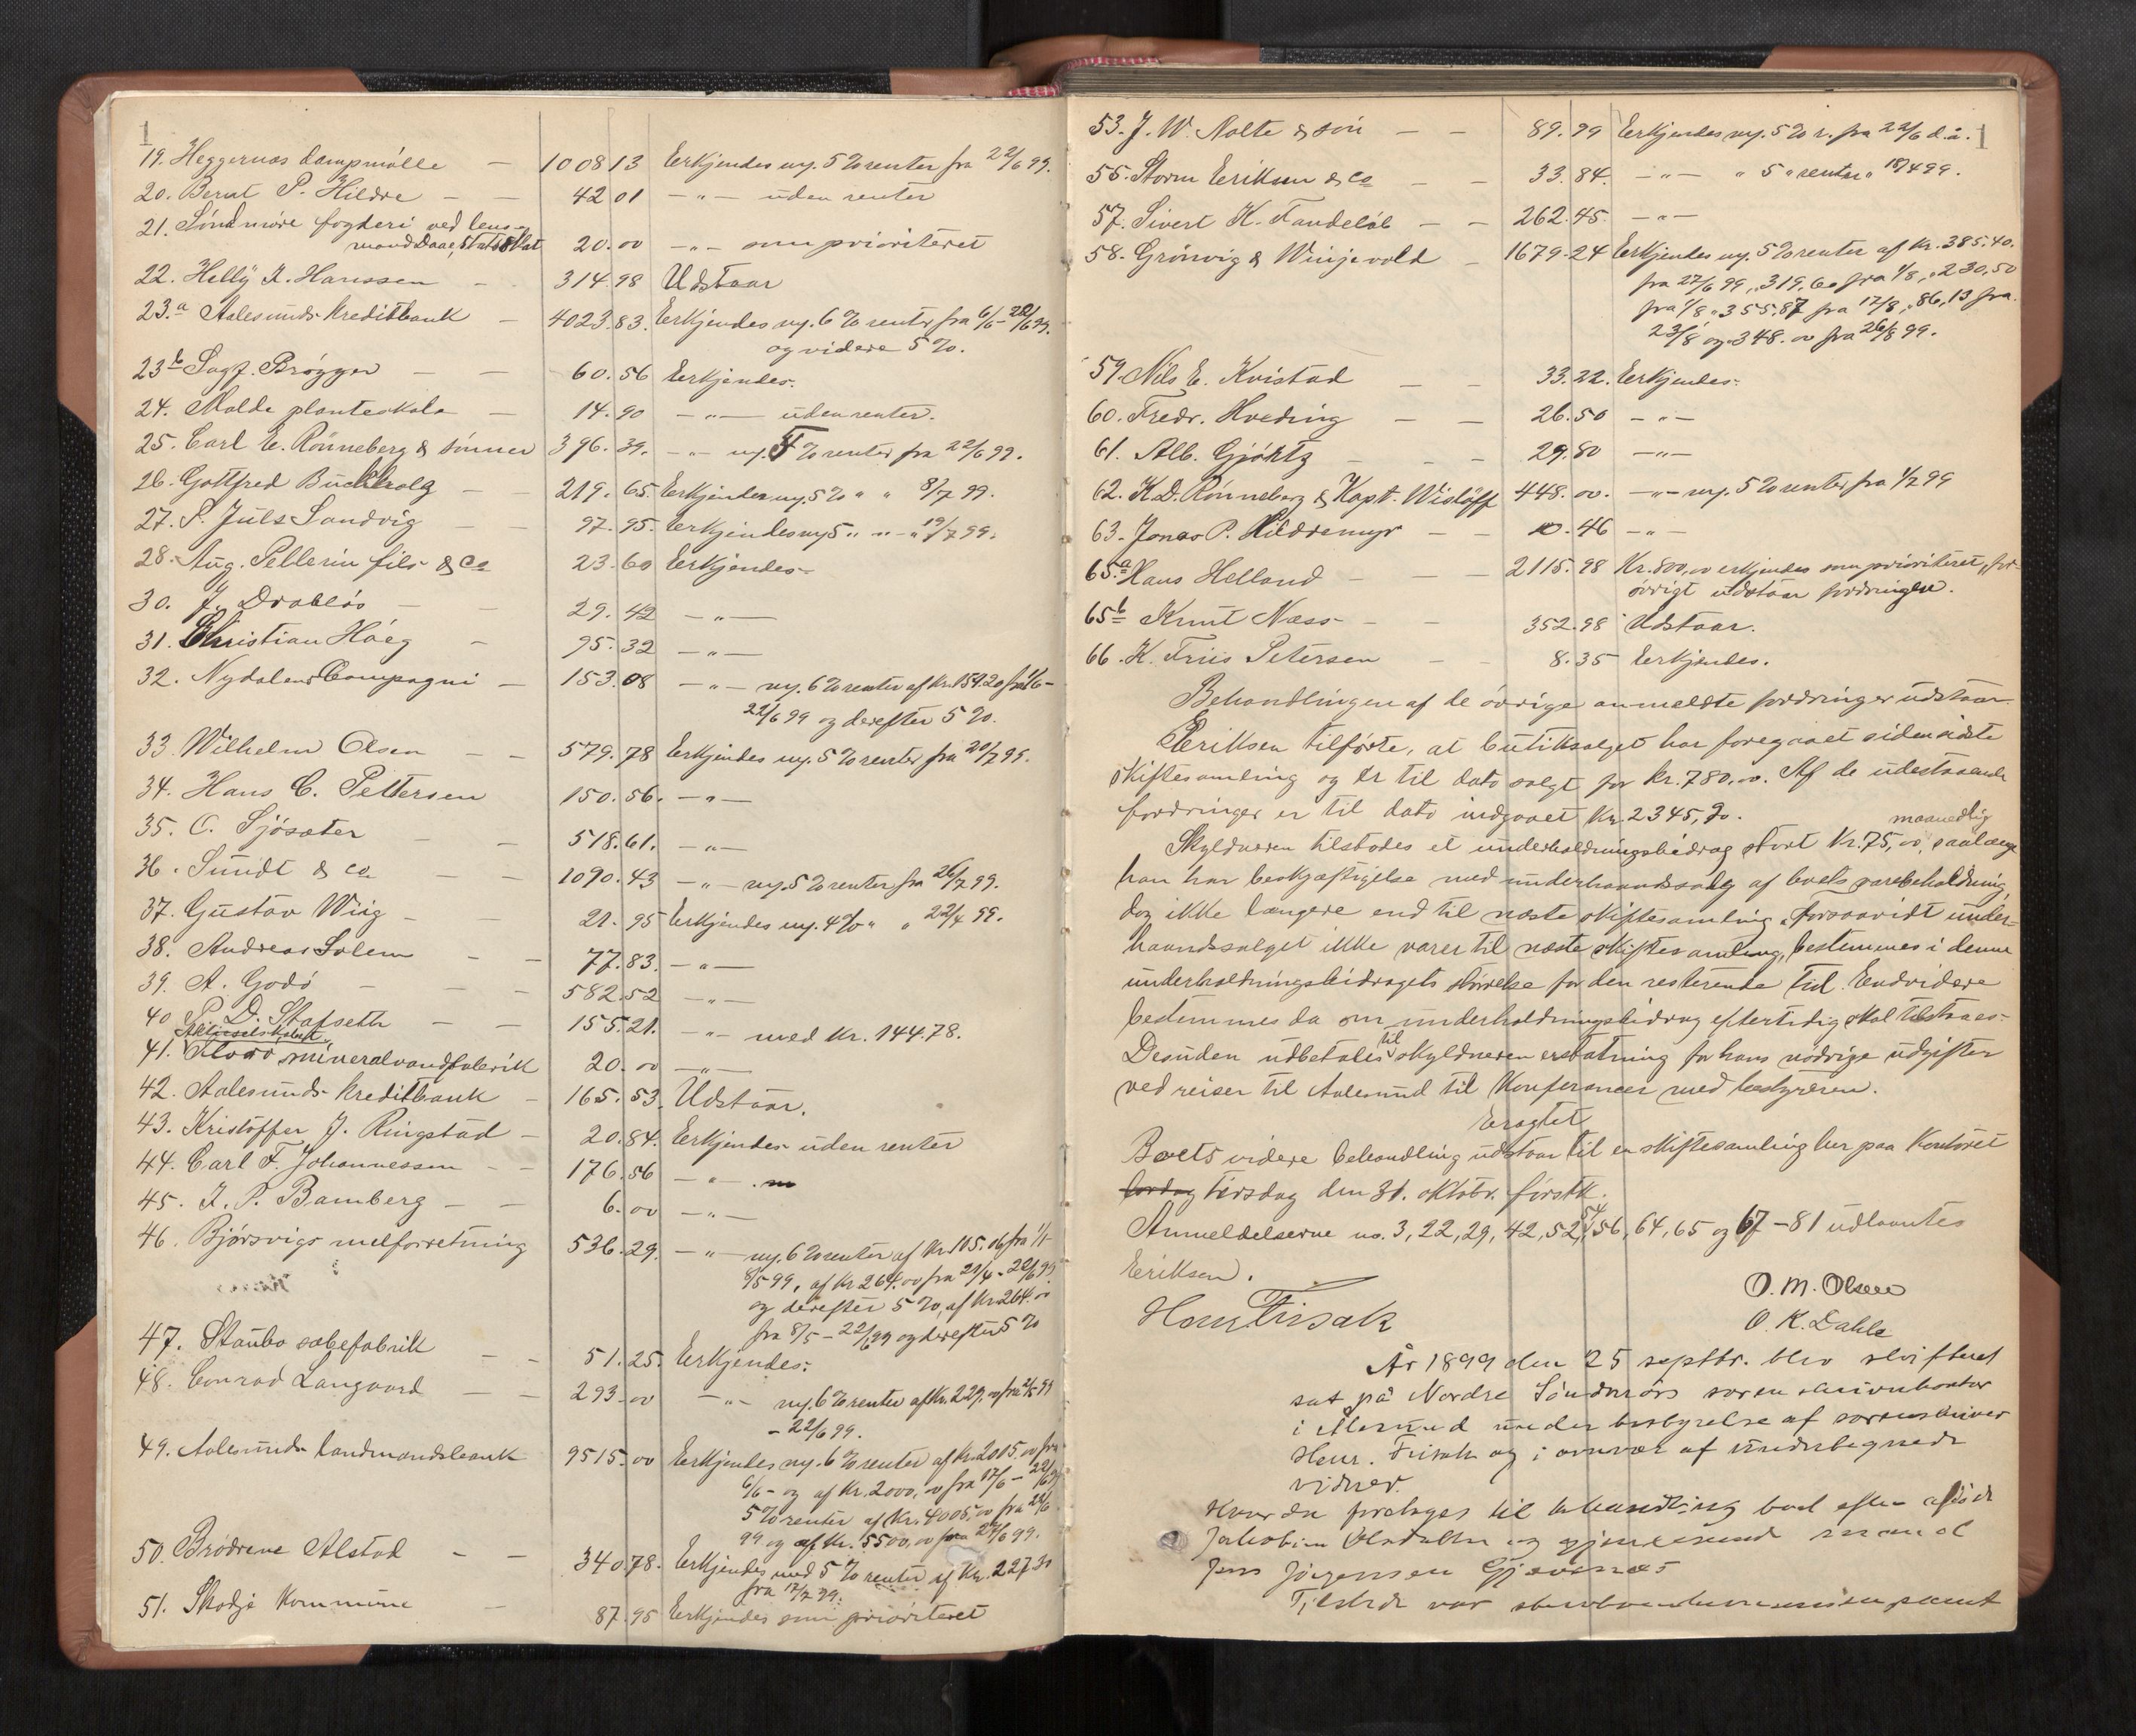 1
19. Heggernæs dampmølle — 1008 13 Erkjendes mg. 5 % renter fra 22/6 99.
20. Bernt P. Hildre — — 42 01 —"— uden renter
21. Søndmøre fogderi ved lens-
mand Daae, Statsskat 20.00 —"— som prioriteret
22. Helly I. Hanssen - 314.98 Udstaar
23.a Aalesunds kreditbank — 4023.83. Erkjendes mg. 6 % renter fra 6/6 - 22/6 99.
og videre 5 %.
23b Sagf. Brøgger — — 60.56 Erkjendes.
24. Molde planteskole — 14.90 —"— uden renter.
25. Carl E. Rønneberg & sønner 396.39. —"— mg. 5 % renter fra 22/6 99.
26. Gottfred Buchholz — — 219.65. Erkjendes mg. 5 % " " 8/7 99.
27. P. Juls Sandvig — — 97.95. Erkjendes mg 5 " " - " 19/7 99.
28. Aug. Pellerin fils & Co 23.60 Erkjendes.
30. J. Drabløs — — 29.42 —"—
31. Christian Høeg - 95.32 —"—
32. Nydalens Compagni — 153.08 —"— mg. 6 % renter af Kr. 159.20 fra 1/6 -
22/6 99 og derefter 5 %.
33. Wilhelm Olsen — — 579.78 Erkjendes mg. 5 % renter fra 20/7 99.
34. Hans C. Pettersen 150.56. —"—
35. O. Sjøsæter — — 518.61. —"—
36. Sundt & Co. — — 1090.43 —"— mg. 5 % renter fra 26/7 99.
37. Gustav Wiig - — 21.95 Erkjendes mg. 4 % " " 22/4 99.
38. Andreas Solem — — 77.83. —"—
39. A. Godø — — 582.52 —"—
40 P. D. Stafseth — — 155.21. —"— med Kr. 144.78.
Aktieselskabet
41. Florø mineralvandfabrik 20.00 —"—
42. Aalesunds kreditbank - 165.53. Udstaar.
43. Kristoffer J. Ringstad — 20.84. Erkjendes uden renter
44. Carl F. Johannessen - - 176.56 —"—
45. I. P. Bamberg — — 6.00 —"—
46. Bjørsvigs melforretning 536.29. —"— mg. 6 % renter af Kr. 105.06 fra 1/1 -
8/5 99, af Kr 264.00 fra 21/4 - 22/6 99
og derefter 5 %, af Kr. 264.00
fra 8/5 - 22/6 99 og derefter 5 %
47. Staubo sæbefabrik — — 51.25. Erkjendes.
48. Conrad Langaard — — 293.00 —"— mg. 6 % renter af Kr. 229.00 fra 2/5 99
- 22/6 99.
49. Aalesunds landmandsbank 9515.00 Erkjendes mg. 6 % renter af Kr. 2005.00 fra
6/6 - og af Kr. 2000,00 fra 17/6 - 22/6 99
5 % renter af Kr. 4005,00 fra 22/6
99 og af Kr. 5500,00 fra 22/6 99.
50. Brødrene Alstad — — 340.78. Erkjendes med 5 % renter af Kr. 227.30
fra 17/7 99.
51. Skodje kommune — 87.95 Erkjendes som prioriteret
1
53. J. W. Nolte & søn — — 89.99 Erkjendes mg. 5 % r. fra 22/6 d.å.
55. Storm Eriksen & Co — — 33.84. —"— " 5 " renter " 18/4 99.
57. Sivert K. Fandeløb — — 262.45 —"—
58. Grønvig & Winjevold — 1679.24 Erkjendes mg. 5 % renter af Kr. 385.40.
fra 27/6 99, " 319,60 fra 1/8, " 230,50
fra 1/8 " 355.87 fra 17/8, " 86,13 fra
23/8 og " 348.00 fra 26/8 99.
59. Nils E. Kvistad — — 33.22. Erkjendes.
60. Fredr. Hveding — — 26.50 —"—
61. Alb. Gjørtz — — 29.80 —"—
62. K. D. Rønneberg & Kapt. Wisløff 448.00. —"— mg. 5 % renter fra 1/7 99
63. Jonas P. Hildremyr — — 10.46 —"—
65.a Hans Helland — — 2115.98 Kr. 800,00 erkjendes som prioriteret, for-
øvrigt udstaar fordringen.
65b Knut Næss - — 352.98 Udstaar.
66. K. Friis Petersen — — 8.35 Erkjendes.
Behandlingen af de øvrige anmeldte fordringer udstaar.
Eriksen tilførte, at butiksalget har foregaaet siden sidste
skiftesamling og er til dato solgt for kr. 780,00. Af de udestaaende
fordringer er til dato indgaaet Kr. 2345,70.
maanedlig
Skyldneren tilstodes et underholdningsbidrag stort Kr. 75,00, saalænge
han har beskjæftigelse med underhaandssalg af boets varebeholdning,
dog ikke længere end til næste skiftesamling. Forsaavidt under-
haandssalget ikke varer til næste skiftesamling, bestemmes i denne
underholdningsbidragets størrelse for den resterende tid. Endvidere
bestemmes da om underholdningsbidrag eftertidig skal tilstaaes.
Desuden udbetales til skyldneren erstatning for hans nødvige udgifter
ved reiser til Aalesund til Konferancer med bestyreren.
Eragtet
Boets videre behandling udstaar til en skiftesamling her paa Kontoret
lørdag tirsdag den 31. oktobr. førstk.
Anmeldelserne no. 3, 22, 29, 42, 52, 54, 56, 64, 65 og 67 - 81 udlaantes
Eriksen.
Henr Frisak
O. M. Olsen
O. K. Dahle
År 1899 den 25 septbr. blev skifteret
sat på Nordre Søndmørs sorenskriverkontor
i Ålesund under bestyrelse af sorenskriver
Henr. Frisak og i overvær af undertegnede
vidner.
Hvorda foretoges til behandling boet efter afdøde
Jakobine Olsdatter og gjenlevende mand
Jens Jørgensen Gjævenes
Tilstede var